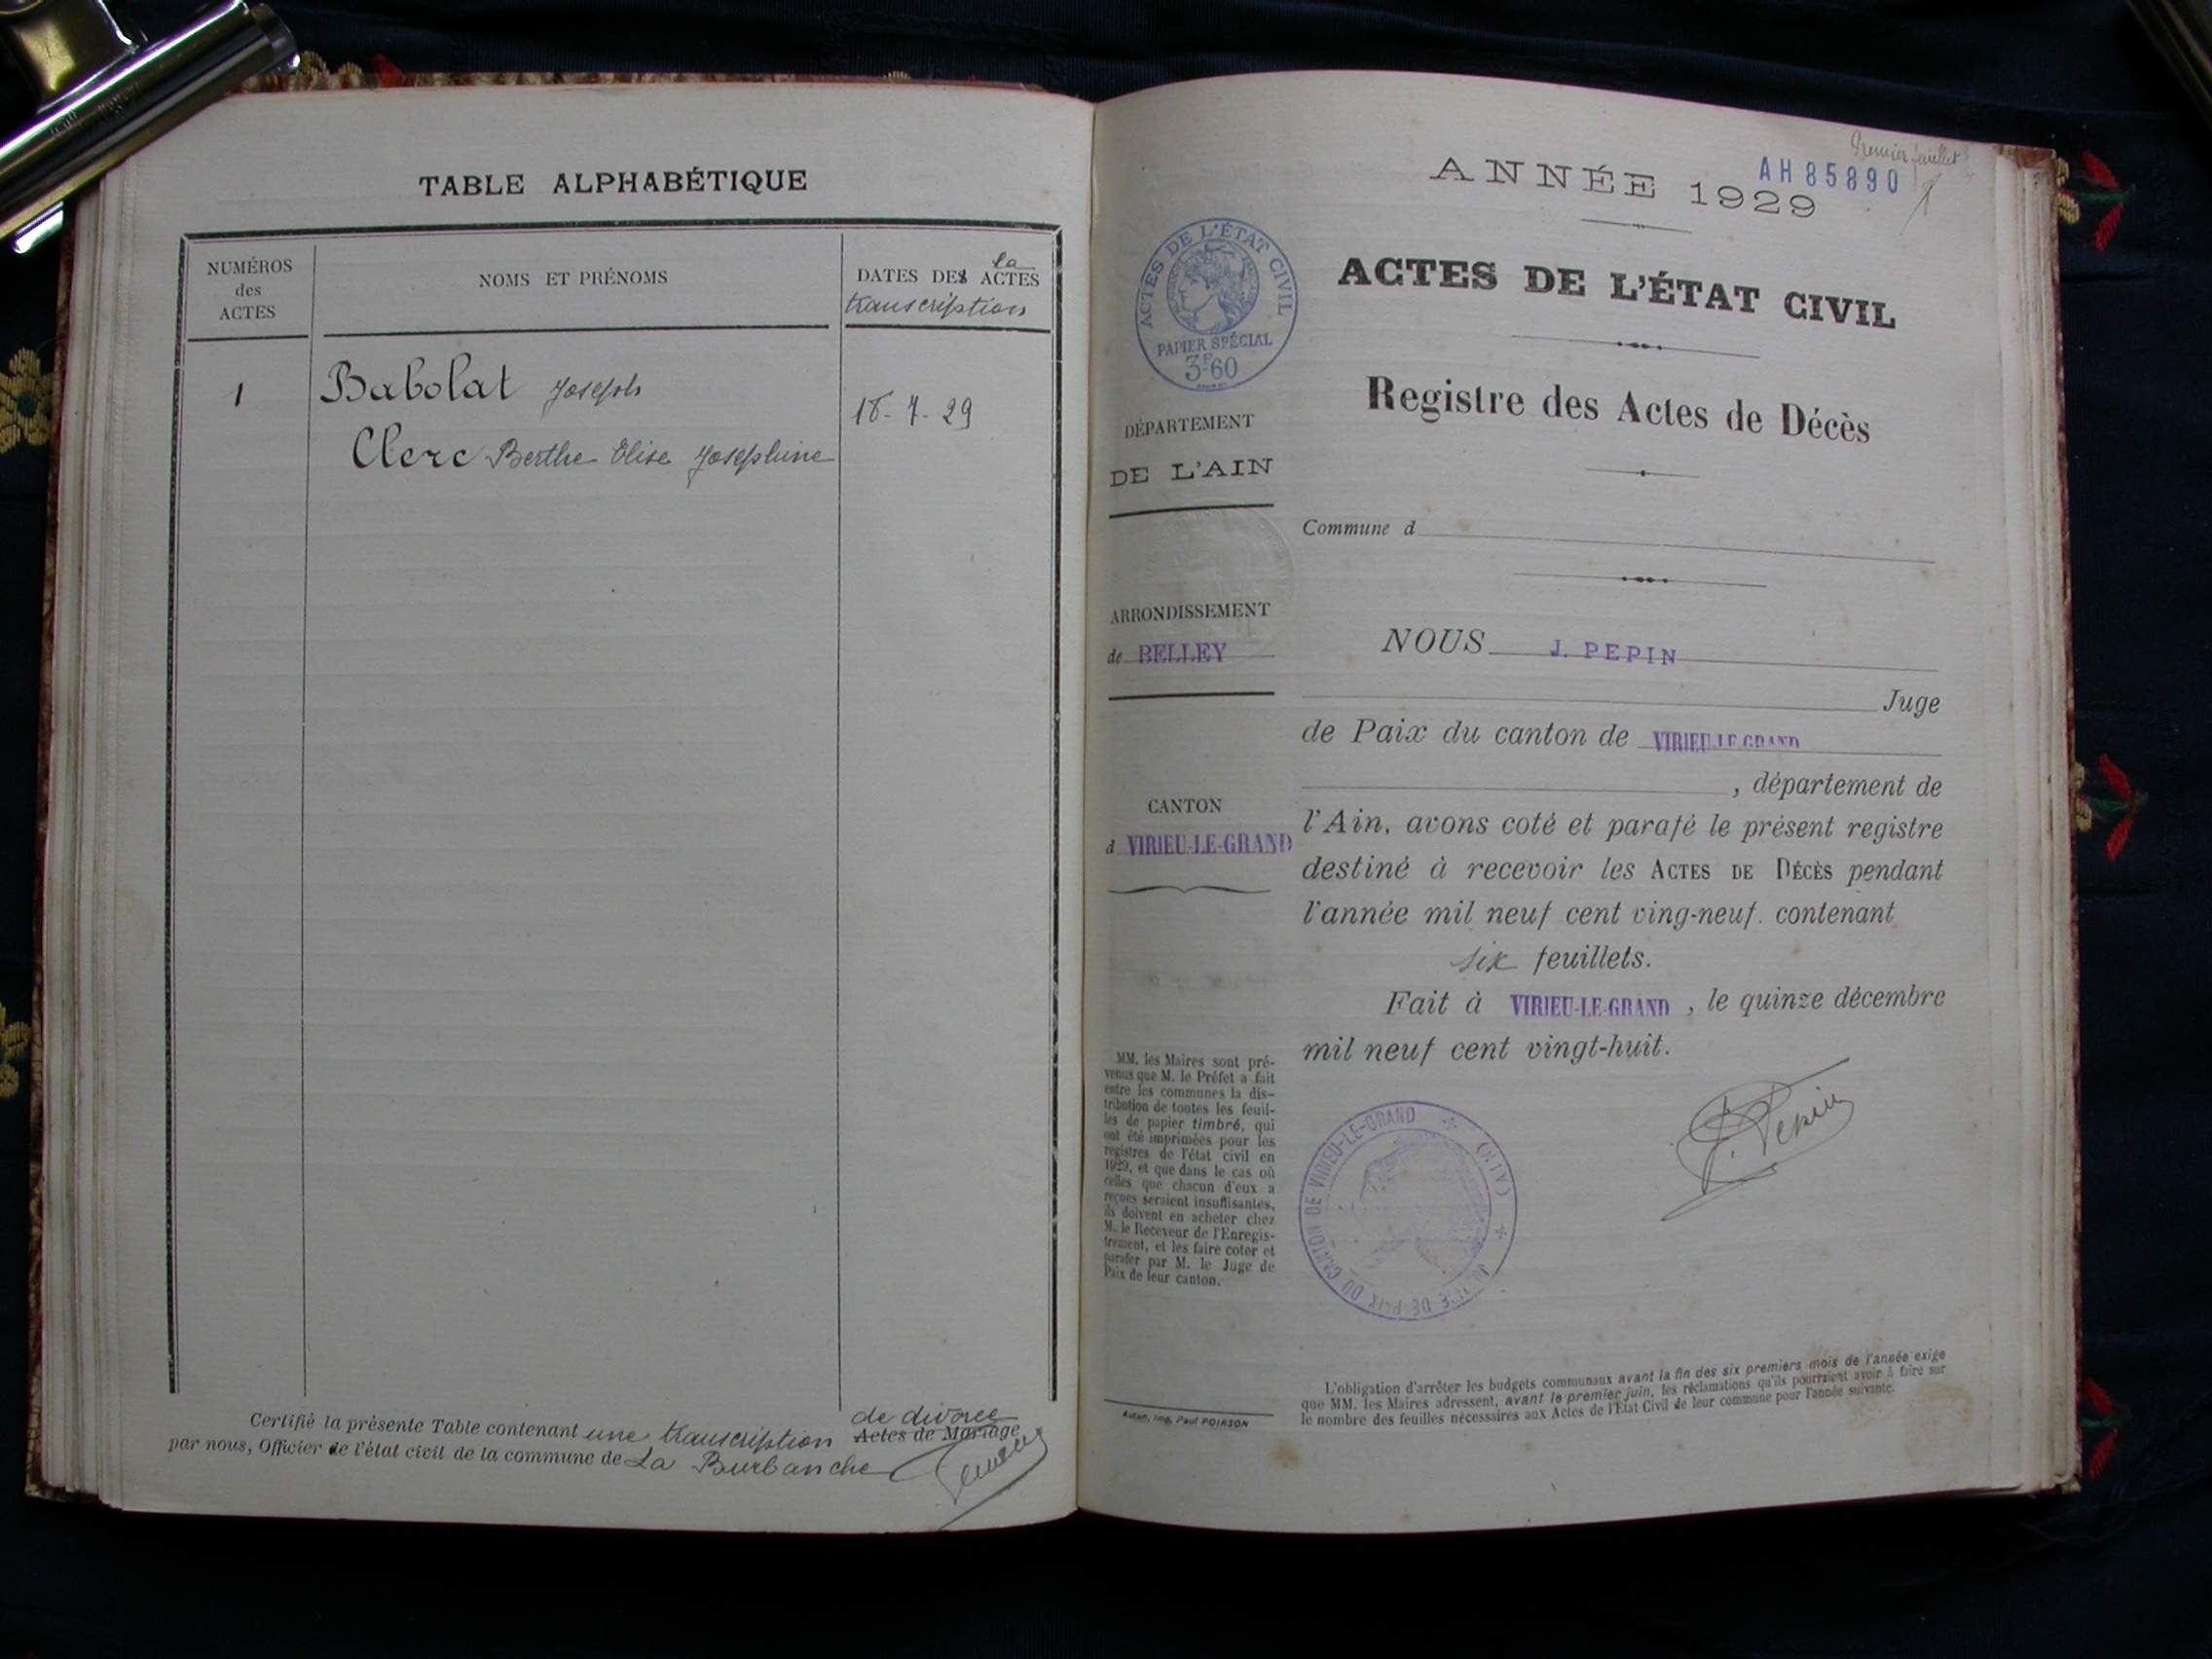 TABLE ALPHABÉTIQUE
NUMÉROS
des
ACTES
NOMS ET PRÉNOMS
la
DATES DES ACTES
transcription
1
Babolat Joseph
Clerc Berthe Elise Josephine
18-7-29
de divorce
Certifié la présente Table contenant une transcription Actes de Mariage
par nous, Officier de l'état civil de la commune de La Burbanche
Premier feuillet
AH 85890
ANNÉE 1929
ACTES DE L'ÉTAT CIVIL
PAPIER SPÉCIAL
3F60
ACTES DE L'ÉTAT CIVIL
Registre des Actes de Décès
DÉPARTEMENT
DE L'AIN
Commune d
ARRONDISSEMENT
de BELLEY
NOUS J. PEPIN
Juge
de Paix du canton de VIRIEU-LE-GRAND
, département de
CANTON
d VIRIEU-LE-GRAND
l'Ain, avons coté et parafé le présent registre
destiné à recevoir les ACTES DE DÉCÈS pendant
l'année mil neuf cent ving-neuf. contenant
six feuillets.
Fait à VIRIEU-LE-GRAND, le quinze décembre
mil neuf cent vingt-huit.
J. Pepin
MM. les Maires sont pré-
venus que M. le Préfet a fait
entre les communes la dis-
tribution de toutes les feuil-
les de papier timbré, qui
ont été imprimées pour les
registres de l'état civil en
1929, et que dans le cas où
celles que chacun d'eux a
reçues seraient insuffisantes,
ils doivent en acheter chez
M. le Receveur de l'Enregis-
trement, et les faire coter et
parafer par M. le Juge de
Paix de leur canton.
JUSTICE DE PAIX DU CANTON DE VIRIEU-LE-GRAND (AIN)
L'obligation d'arrêter les budgets communaux avant la fin des six premiers mois de l'année exige
que MM. les Maires adressent, avant le premier juin, les réclamations qu'ils pourraient avoir à faire sur
le nombre des feuilles nécessaires aux Actes de l'État Civil de leur commune pour l'année suivante.
Imp. Paul POIRSON